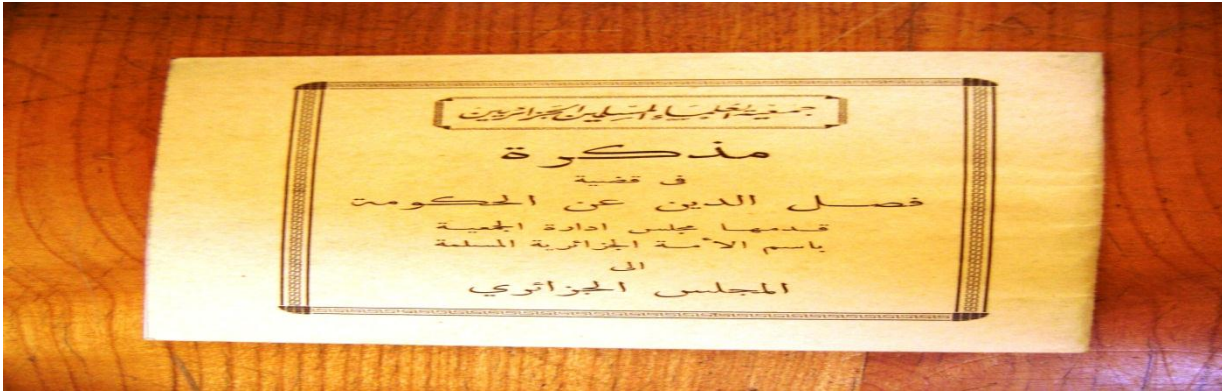 جمعية العلماء المسلمين الجزائريين
مذكرة
في قضية
فصل الدين عن الحكومة
قدمها مجلس ادارة الجمعية
باسم الأمة الجزائرية المسلمة
الى
المجلس الجزائري